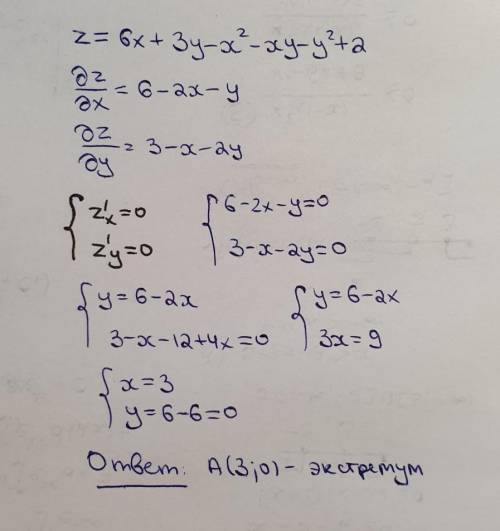 z = 6x + 3y - x² - xy - y² + 2
∂z/∂x = 6 - 2x - y
∂z/∂y = 3 - x - 2y
{ z'x = 0 { 6 - 2x - y = 0
{ z'y = 0 { 3 - x - 2y = 0
{ y = 6 - 2x { y = 6 - 2x
{ 3 - x - 12 + 4x = 0 { 3x = 9
{ x = 3
{ y = 6 - 6 = 0
Ответ: A(3;0) - экстремум